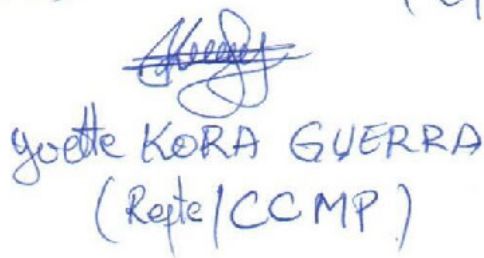 Yvette KORA GUERRA
(Repte/CCMP)